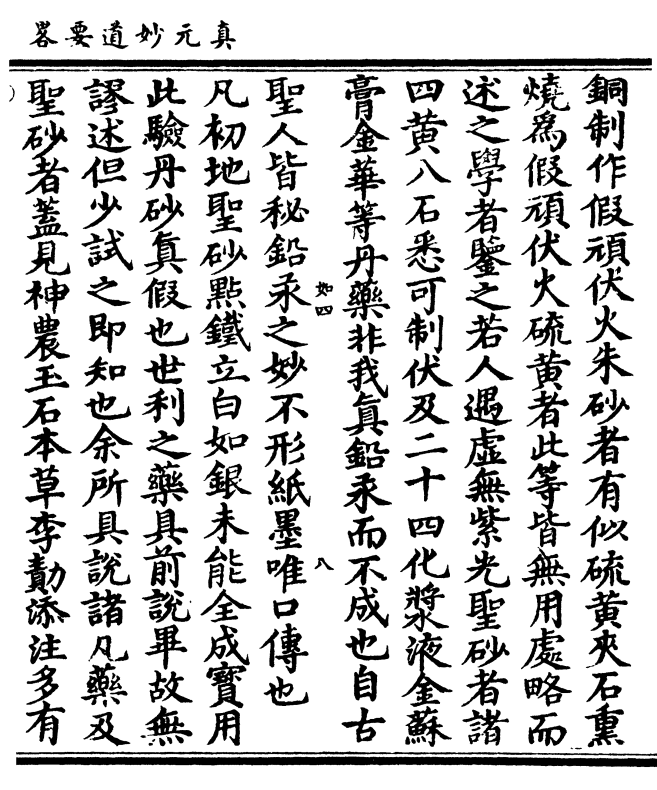 真元妙道要畧
銅制作假頑伏火朱砂者有似硫黄夾石熏
燒爲假頑伏火硫黄者此等皆無用處略而
述之學者鑒之若人遇虛無紫光聖砂者諸
四黄八石悉可制伏及二十四化漿液金蘇
膏金華等丹藥非我真鉛汞而不成也自古
如四
八
聖人皆秘鉛汞之妙不形紙墨唯口傳也
凡初地聖砂點鐵立白如銀未能全成寶用
此驗丹砂眞假也世利之藥具前說畢故無
謬述但少試之即知也余所具說諸凡藥及
聖砂者蓋見神農玉石本草李勣添注多有